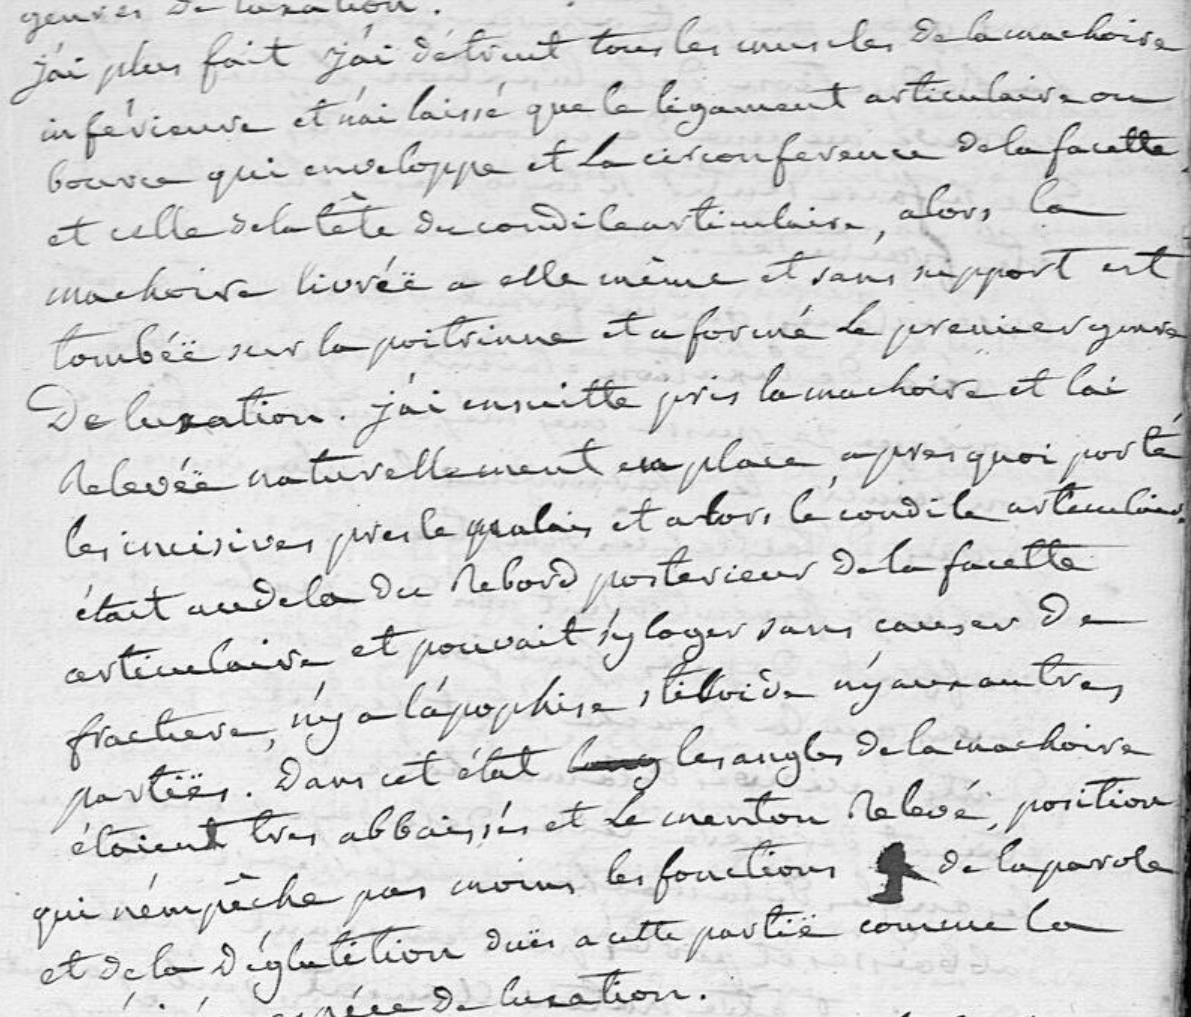 genres de luxation.
j'ai plus fait j'ai détruit tous les muscles de la machoire
inférieure et n'ai laissé que le ligament articulaire ou
bource qui enveloppe et la circonference de la facette
et celle de la tête du condile articulaire, alors la
machoire livréë a elle même et sans support est
tombéë sur la poitrinne et a formé le premier genre
De luxation. j'ai ensuitte pris la machoire et lai
Relevéë naturellement en place, apres quoi porté
les incisives pres le palais et alors le condile articulaire
était audela du Rebord posterieur de la facette
articulaire et pouvait s'y loger sans causer De
fracture, n'y a l'apophise stiloide n'y aux autres
partiës. Dans cet état les angles de la machoire
étaient tres abbaissés et le menton Relevé, position
qui n'émpêche pas moins les fonctions de la parole
et de la Déglutition duës a cette partië comme la
espéce de luxation.